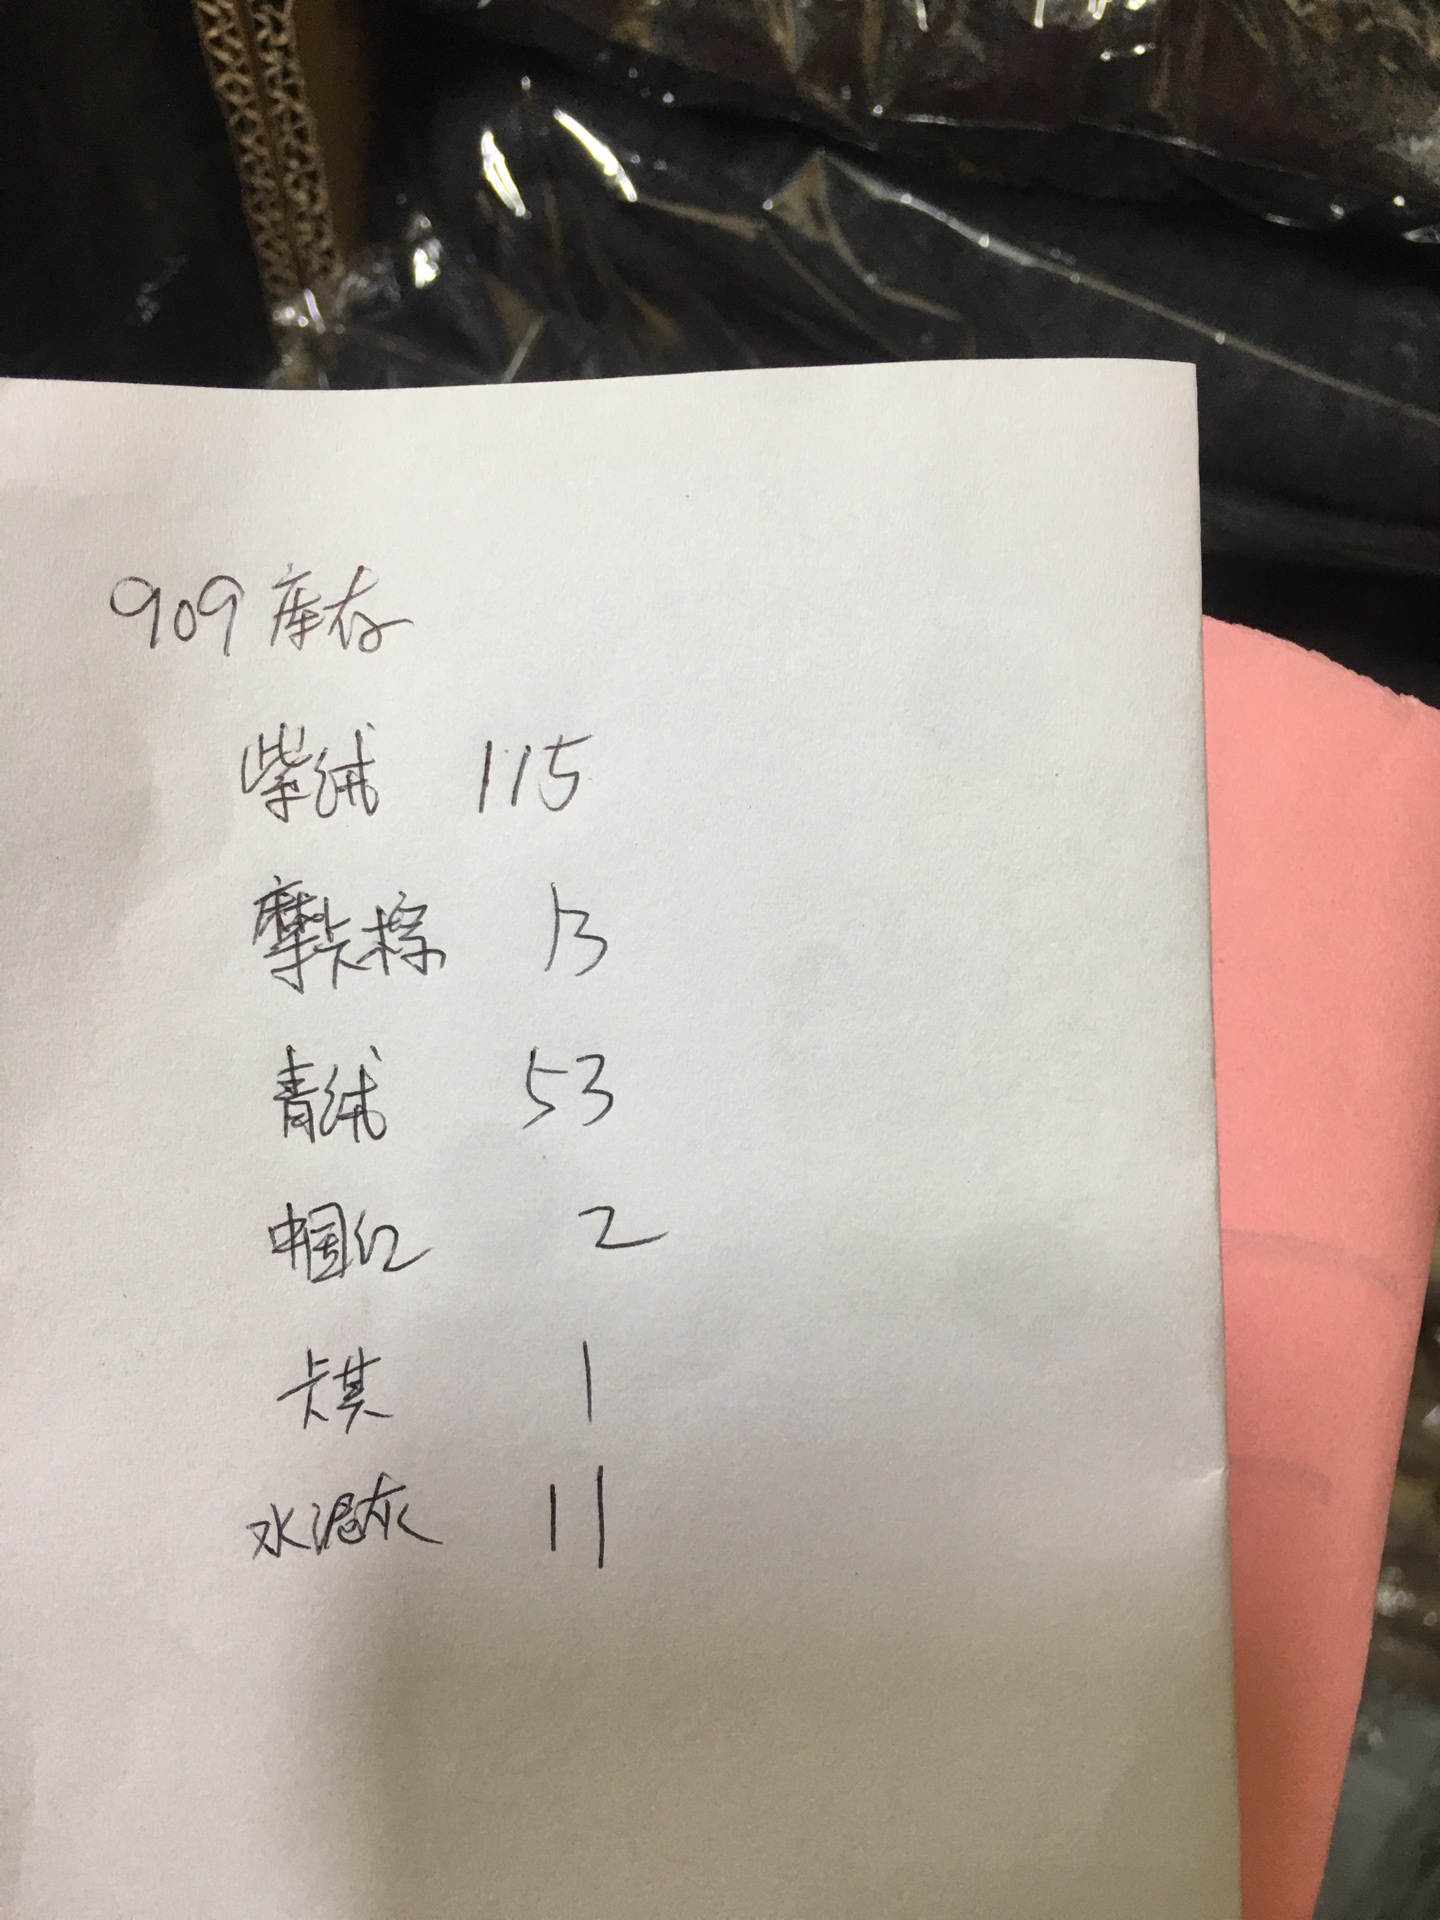 909 库存
紫绒 115
摩卡棕 13
青绒 53
中国红 2
卡其 1
水泥灰 11